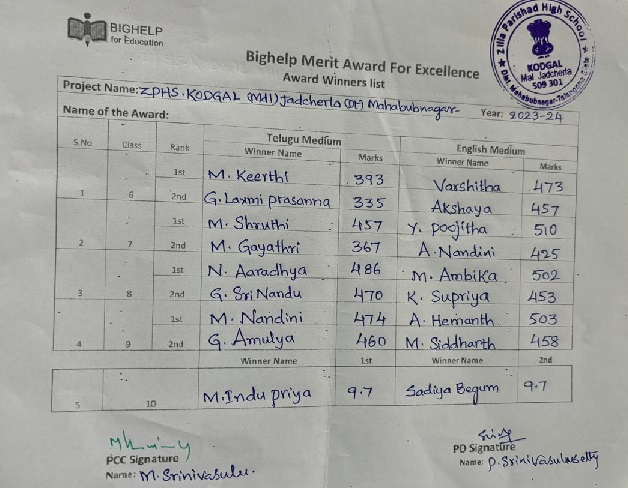 BIGHELP
for Education
Zilla Parishad High School
KODGAL
Mal Jadcherla
509 301
Dist Mahabubnagar-Telangana State
Bighelp Merit Award For Excellence
Award Winners list
Project Name: ZPHS. KODGAL (Mdl) Jadcherla (Dt) Mahabubnagar-
Name of the Award: Year: 2023-24
Telugu Medium English Medium
S.No Class Rank Winner Name Marks Winner Name Marks
1 6 1st M. Keerthi 393 Varshitha 473
2nd G. Laxmi prasanna 335 Akshaya 457
2 7 1st M. Shruthi 457 Y. poojitha 510
2nd M. Gayathri 367 A. Nandini 425
3 8 1st N. Aaradhya 486 M. Ambika 502
2nd G. Sri Nandu 470 K. Supriya 453
4 9 1st M. Nandini 474 A. Hemanth 503
2nd G. Amulya 460 M. Siddharth 458
Winner Name 1st Winner Name 2nd
5 10 M. Indu priya 9.7 Sadiya Begum 9.7
PCC Signature PD Signature
Name: M. Srinivasulu. Name: P. Srinivasulusetty